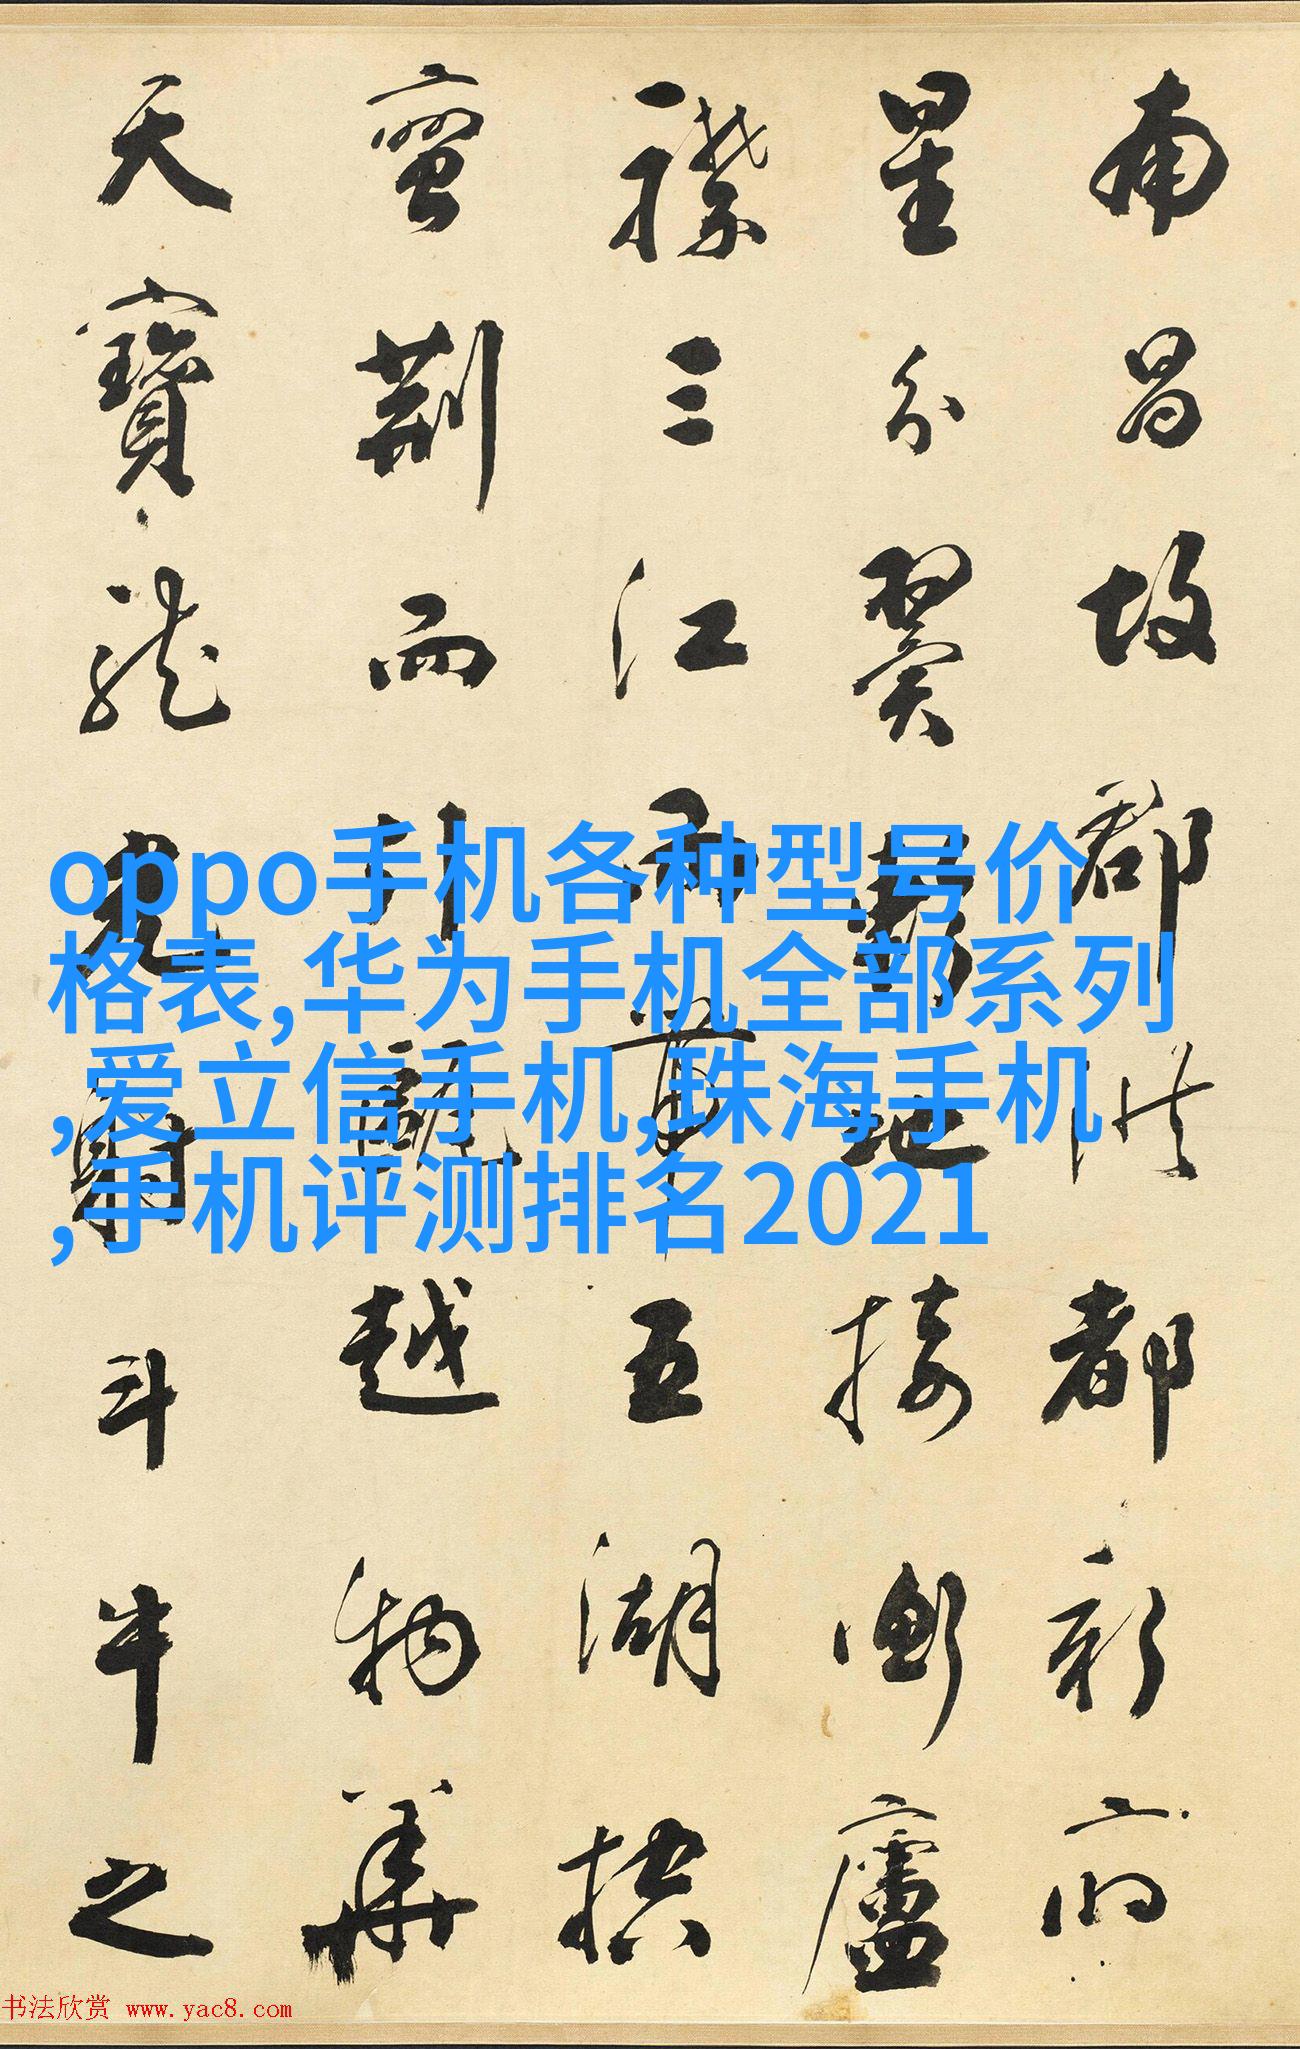 南昌故郡洪都新府
星分翼軫地接衡廬
襟三江而帶五湖控
蠻荊而引甌越物華
天寶龍光射斗牛之
oppo手机各种型号价
格表,华为手机全部系列
,爱立信手机,珠海手机
,手机评测排名2021
书法欣赏 www.yac8.com